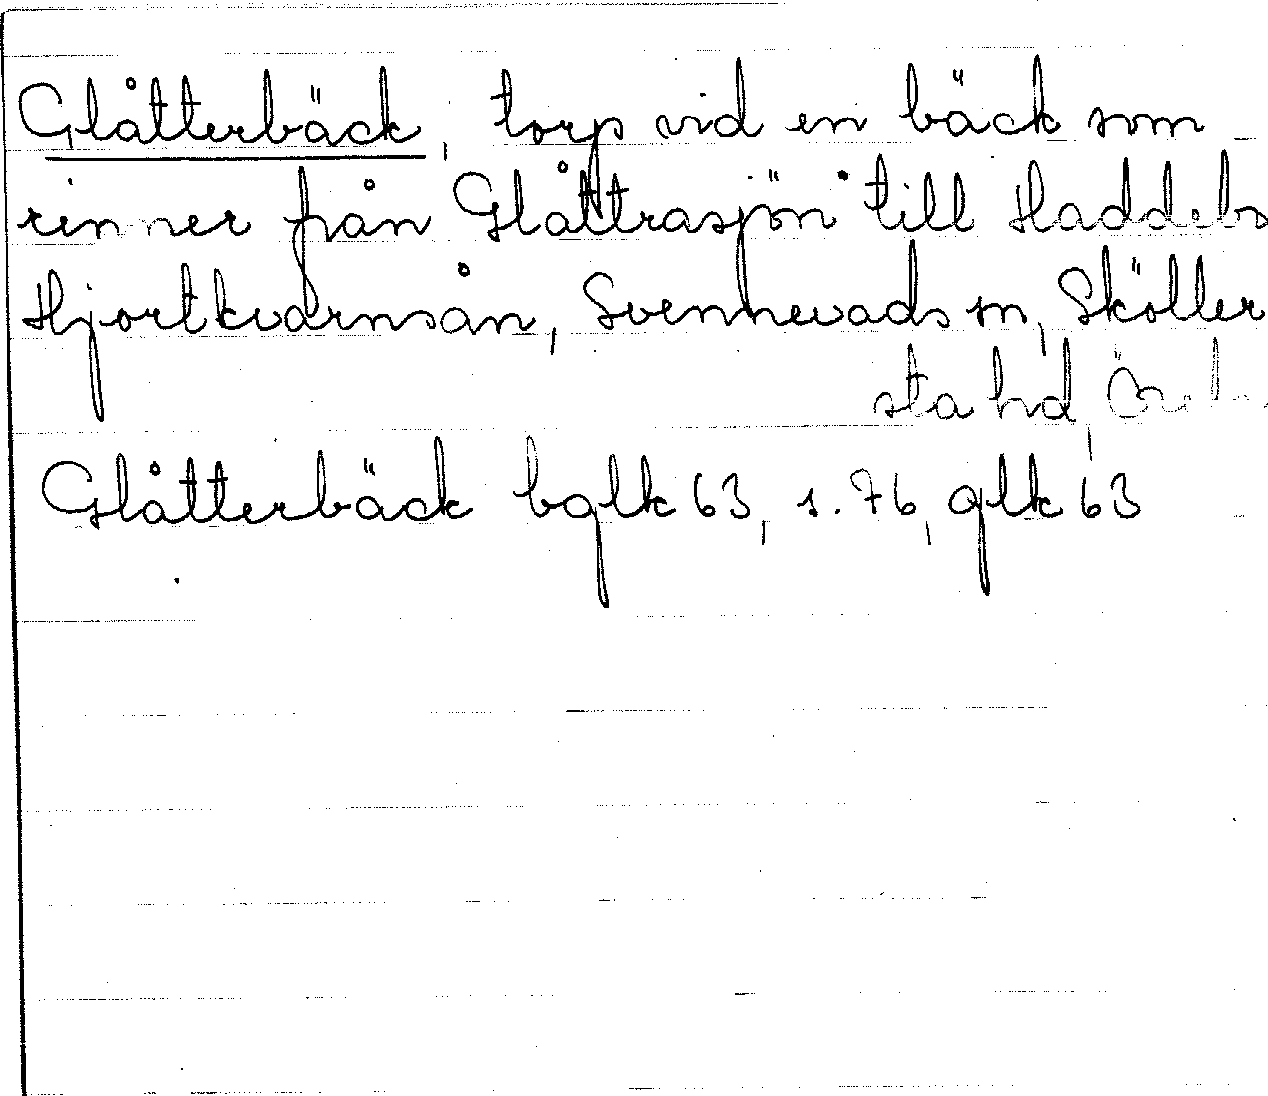 Glåtterbäck, torp vid en bäck som
rinner från Glåttrasjön till Haddebo
Hjortkvarnsån, Svennevads sn, Sköller
sta hd,
Glåtterbäck bglk 63, s. 76, glk 63